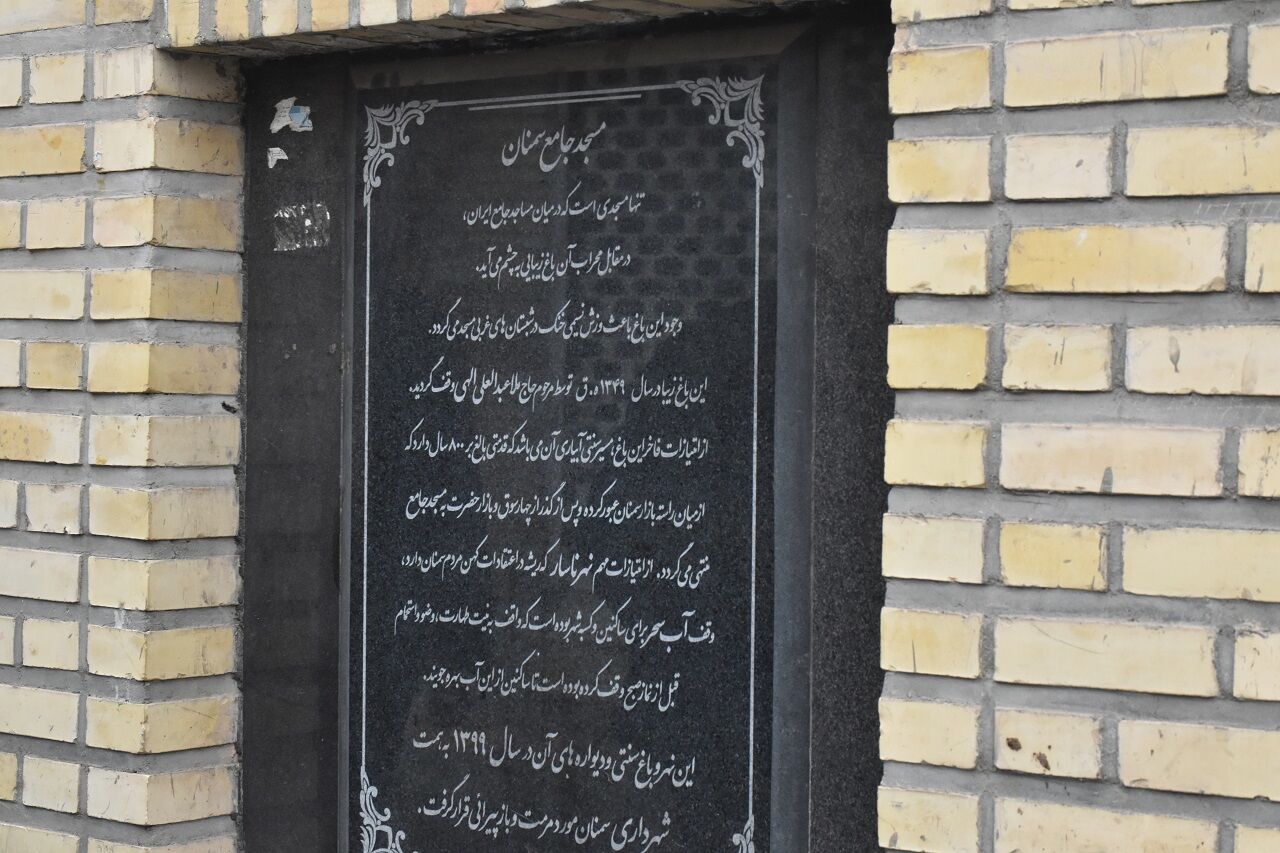 مسجد جامع سمنان
تنها مسجدی است که در میان مساجد جامع ایران،
در مقابل محراب آن باغ زیبایی به چشم می آید.
وجود این باغ باعث وزش نسیمی خنک در شبستان های غربی مسجد می گردد.
این باغ زیبا در سال ۱۳۴۹ ه.ق توسط مرحوم حاج ملا عبدالعلی الهی وقف گردید.
از امتیازات فاخر این باغ، مسیر سنتی آبیاری آن می باشد که قدمتی بالغ بر ۸۰۰ سال دارد که
از میان راسته بازار سمنان عبور کرده و پس از گذر از چهارسوق و بازار حضرت به مسجد جامع
منتهی می گردد. از امتیازات مهم نهر ناسار که ریشه در اعتقادات کهن مردم سمنان دارد،
وقف آب سحر برای ساکنین و کسبه شهر بوده است که واقف به نیت طهارت، وضو و استحمام
قبل از نماز صبح وقف کرده بوده است تا ساکنین از این آب بهره جویند.
این نهر و باغ سنتی و دیواره های آن در سال ۱۳۹۹ به همت
شهرداری سمنان مورد مرمت و باز پیرائی قرار گرفت.